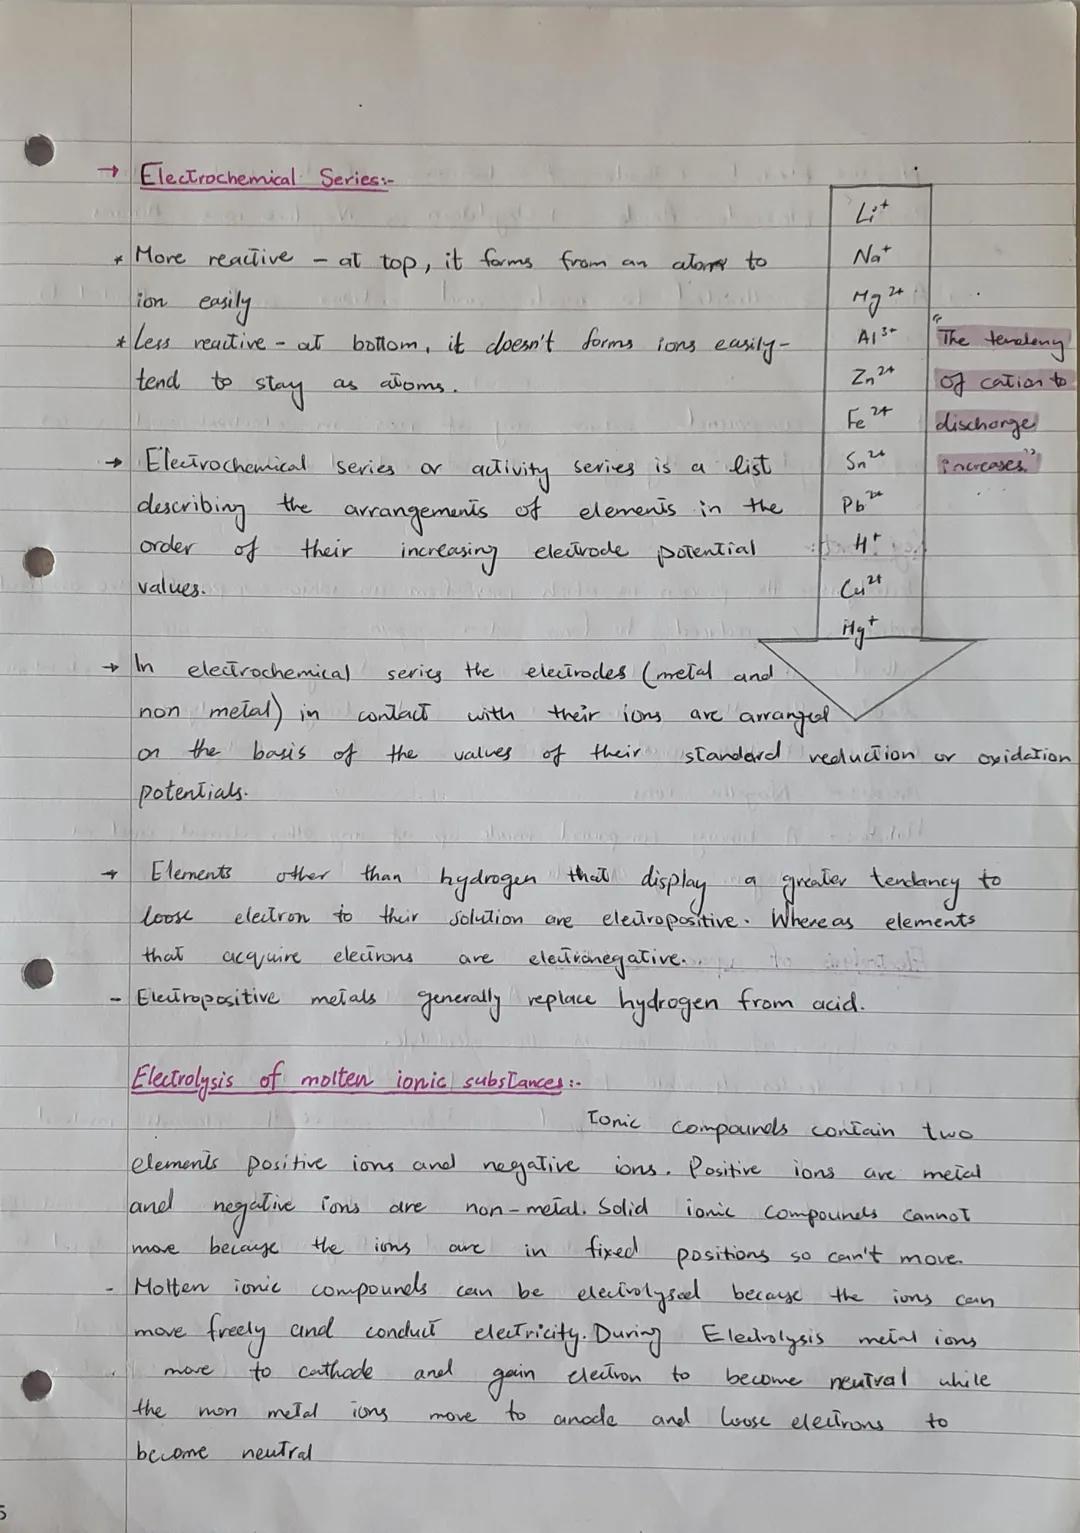 → Electrochemical Series:-
* More reactive - at top, it forms from an atom to
ion easily
* Less reactive - at bottom, it doesn't forms ions easily-
tend to stay as atoms.
Li⁺
Na⁺
Mg²⁺
Al³⁺
Zn²⁺
Fe²⁺
Sn²⁺
Pb²⁺
H⁺
Cu²⁺
Hg⁺
"The tendeny
of cation to
discharge
increases."
→ Electrochemical series or activity series is a list
describing the arrangements of elements in the
order of their increasing electrode potential
values.
→ In electrochemical series the electrodes (metal and
non metal) in contact with their ions are arranged
on the basis of the values of their standard reduction or oxidation
potentials.
→ Elements other than hydrogen that display a greater tendancy to
loose electron to their solution are electropositive. Whereas elements
that acquire electrons are electronegative.
- Electropositive metals generally replace hydrogen from acid.
Electrolysis of molten ionic substances:-
Ionic compounds contain two
elements positive ions and negative ions. Positive ions are metal
and negative ions are non-metal. Solid ionic compounds cannot
move because the ions are in fixed positions so can't move.
- Molten ionic compounds can be electrolysed because the ions can
move freely and conduct electricity. During Electrolysis metal ions
move to cathode and gain electron to become neutral while
the non metal ions move to anode and loose electrons to
become neutral
5